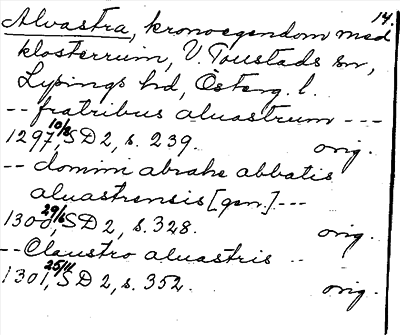 14.
Alvastra, kronoegendom med
klosterruin, V. Toustads sn,
Lysings hd, Österg. l.
-- fratribus aluastrum ---
1297 10/8, SD 2, s. 239. orig.
-- domini abrahe abbatis
aluastrensis [gen.] ---
1300 29/6, SD 2, s. 328. orig.
-- Claustro aluastris --
1301 25/11, SD 2, s. 352. orig.